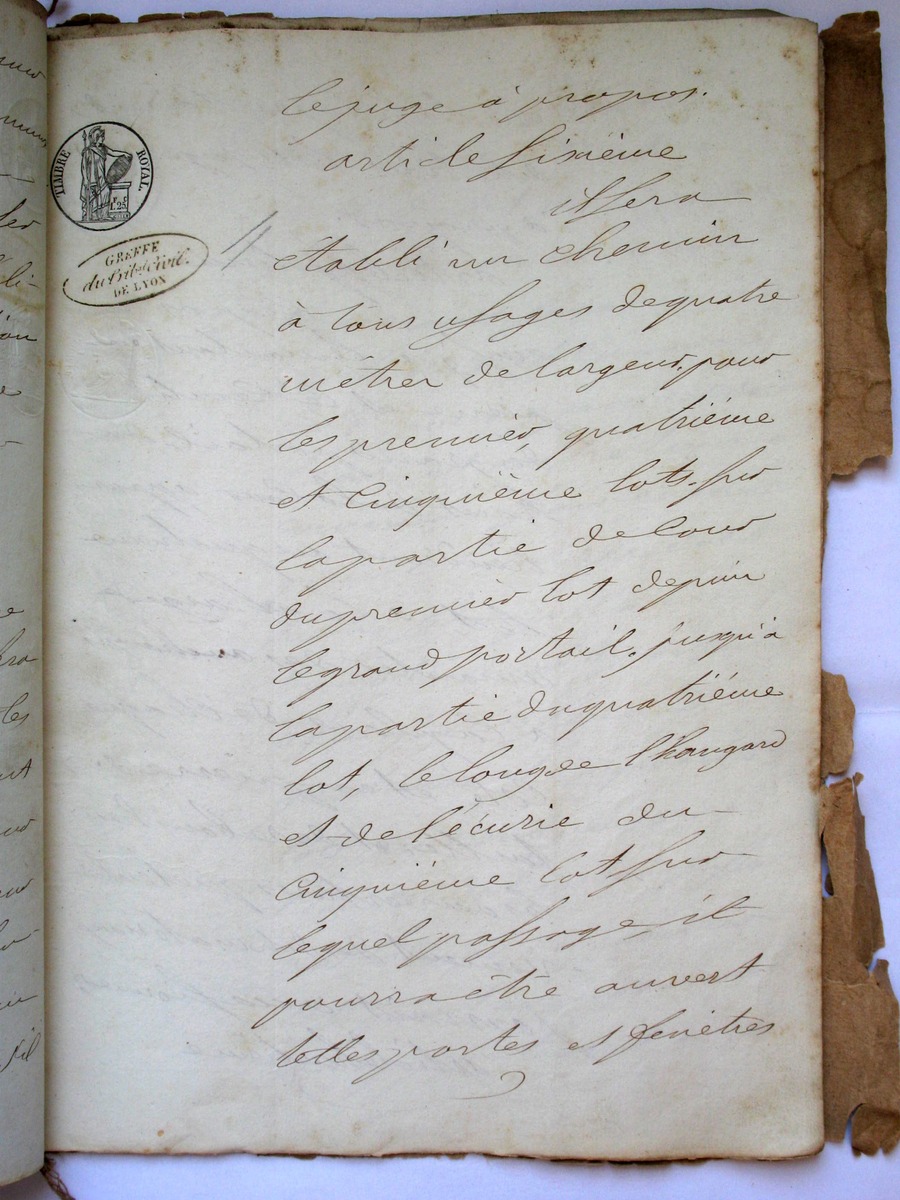 TIMBRE ROYAL.
1 F. 25 C.
GREFFE
du Trib.al Civil
DE LYON
le juge à propos.
article sixième
il sera
établi un chemin
à tous usages de quatre
mètres de largeur, pour
les premier, quatrième
et cinquième lots, sur
la partie de cour
du premier lot depuis
le grand portail, jusqu'à
la partie du quatrième
lot, le long de l'hangard
et de l'écurie du
cinquième lot sur
lequel passage, il
pourra être ouvert
telles portes et fenêtres
les
s'il